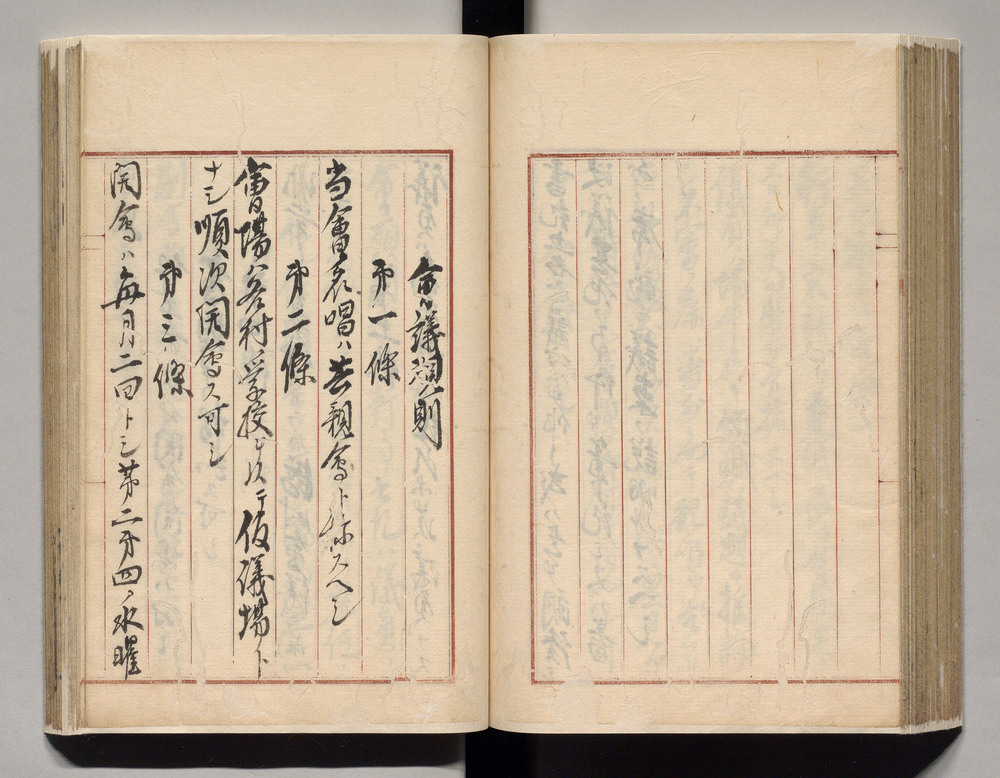 会議規則
第一條
当會名唱ハ其親會ト称スヘシ
第二條
會場ハ各村学校ヲ以テ仮議場ト
ナシ順次開會ス可シ
第三條
開會ハ毎月二回トシ第二第四ノ水曜